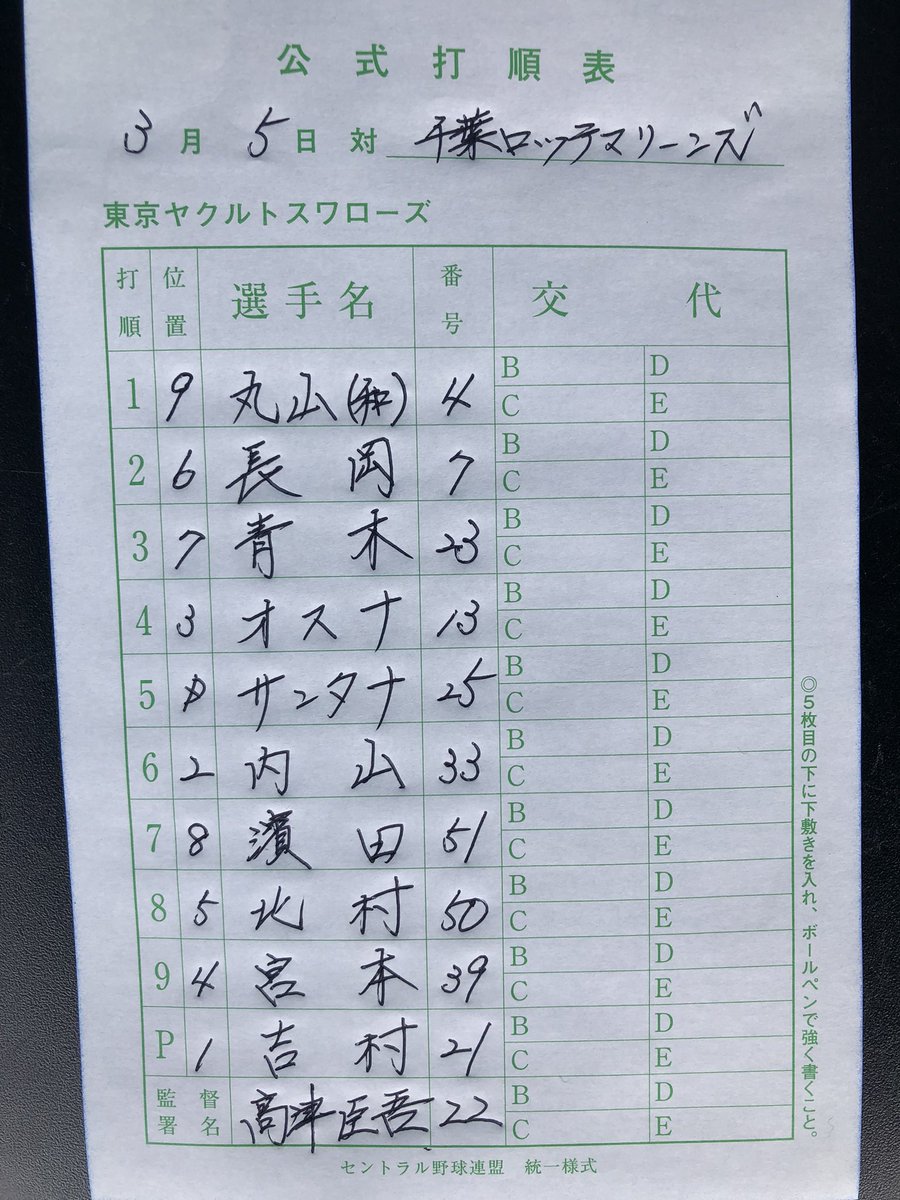 公式打順表
3月5日対 千葉ロッテマリーンズ
東京ヤクルトスワローズ
打順 位置 選手名 番号 交代
1 9 丸山(和) 4 B D
C E
2 6 長岡 7 B D
C E
3 7 青木 23 B D
C E
4 3 オスナ 13 B D
C E
5 D サンタナ 25 B D
C E
6 2 内山 33 B D
C E
7 8 濱田 51 B D
C E
8 5 北村 50 B D
C E
9 4 宮本 39 B D
C E
P 1 吉村 21 B D
C E
監督署名 高津臣吾 22 B D
C E
◎5枚目の下に下敷きを入れ、ボールペンで強く書くこと。
セントラル野球連盟 統一様式